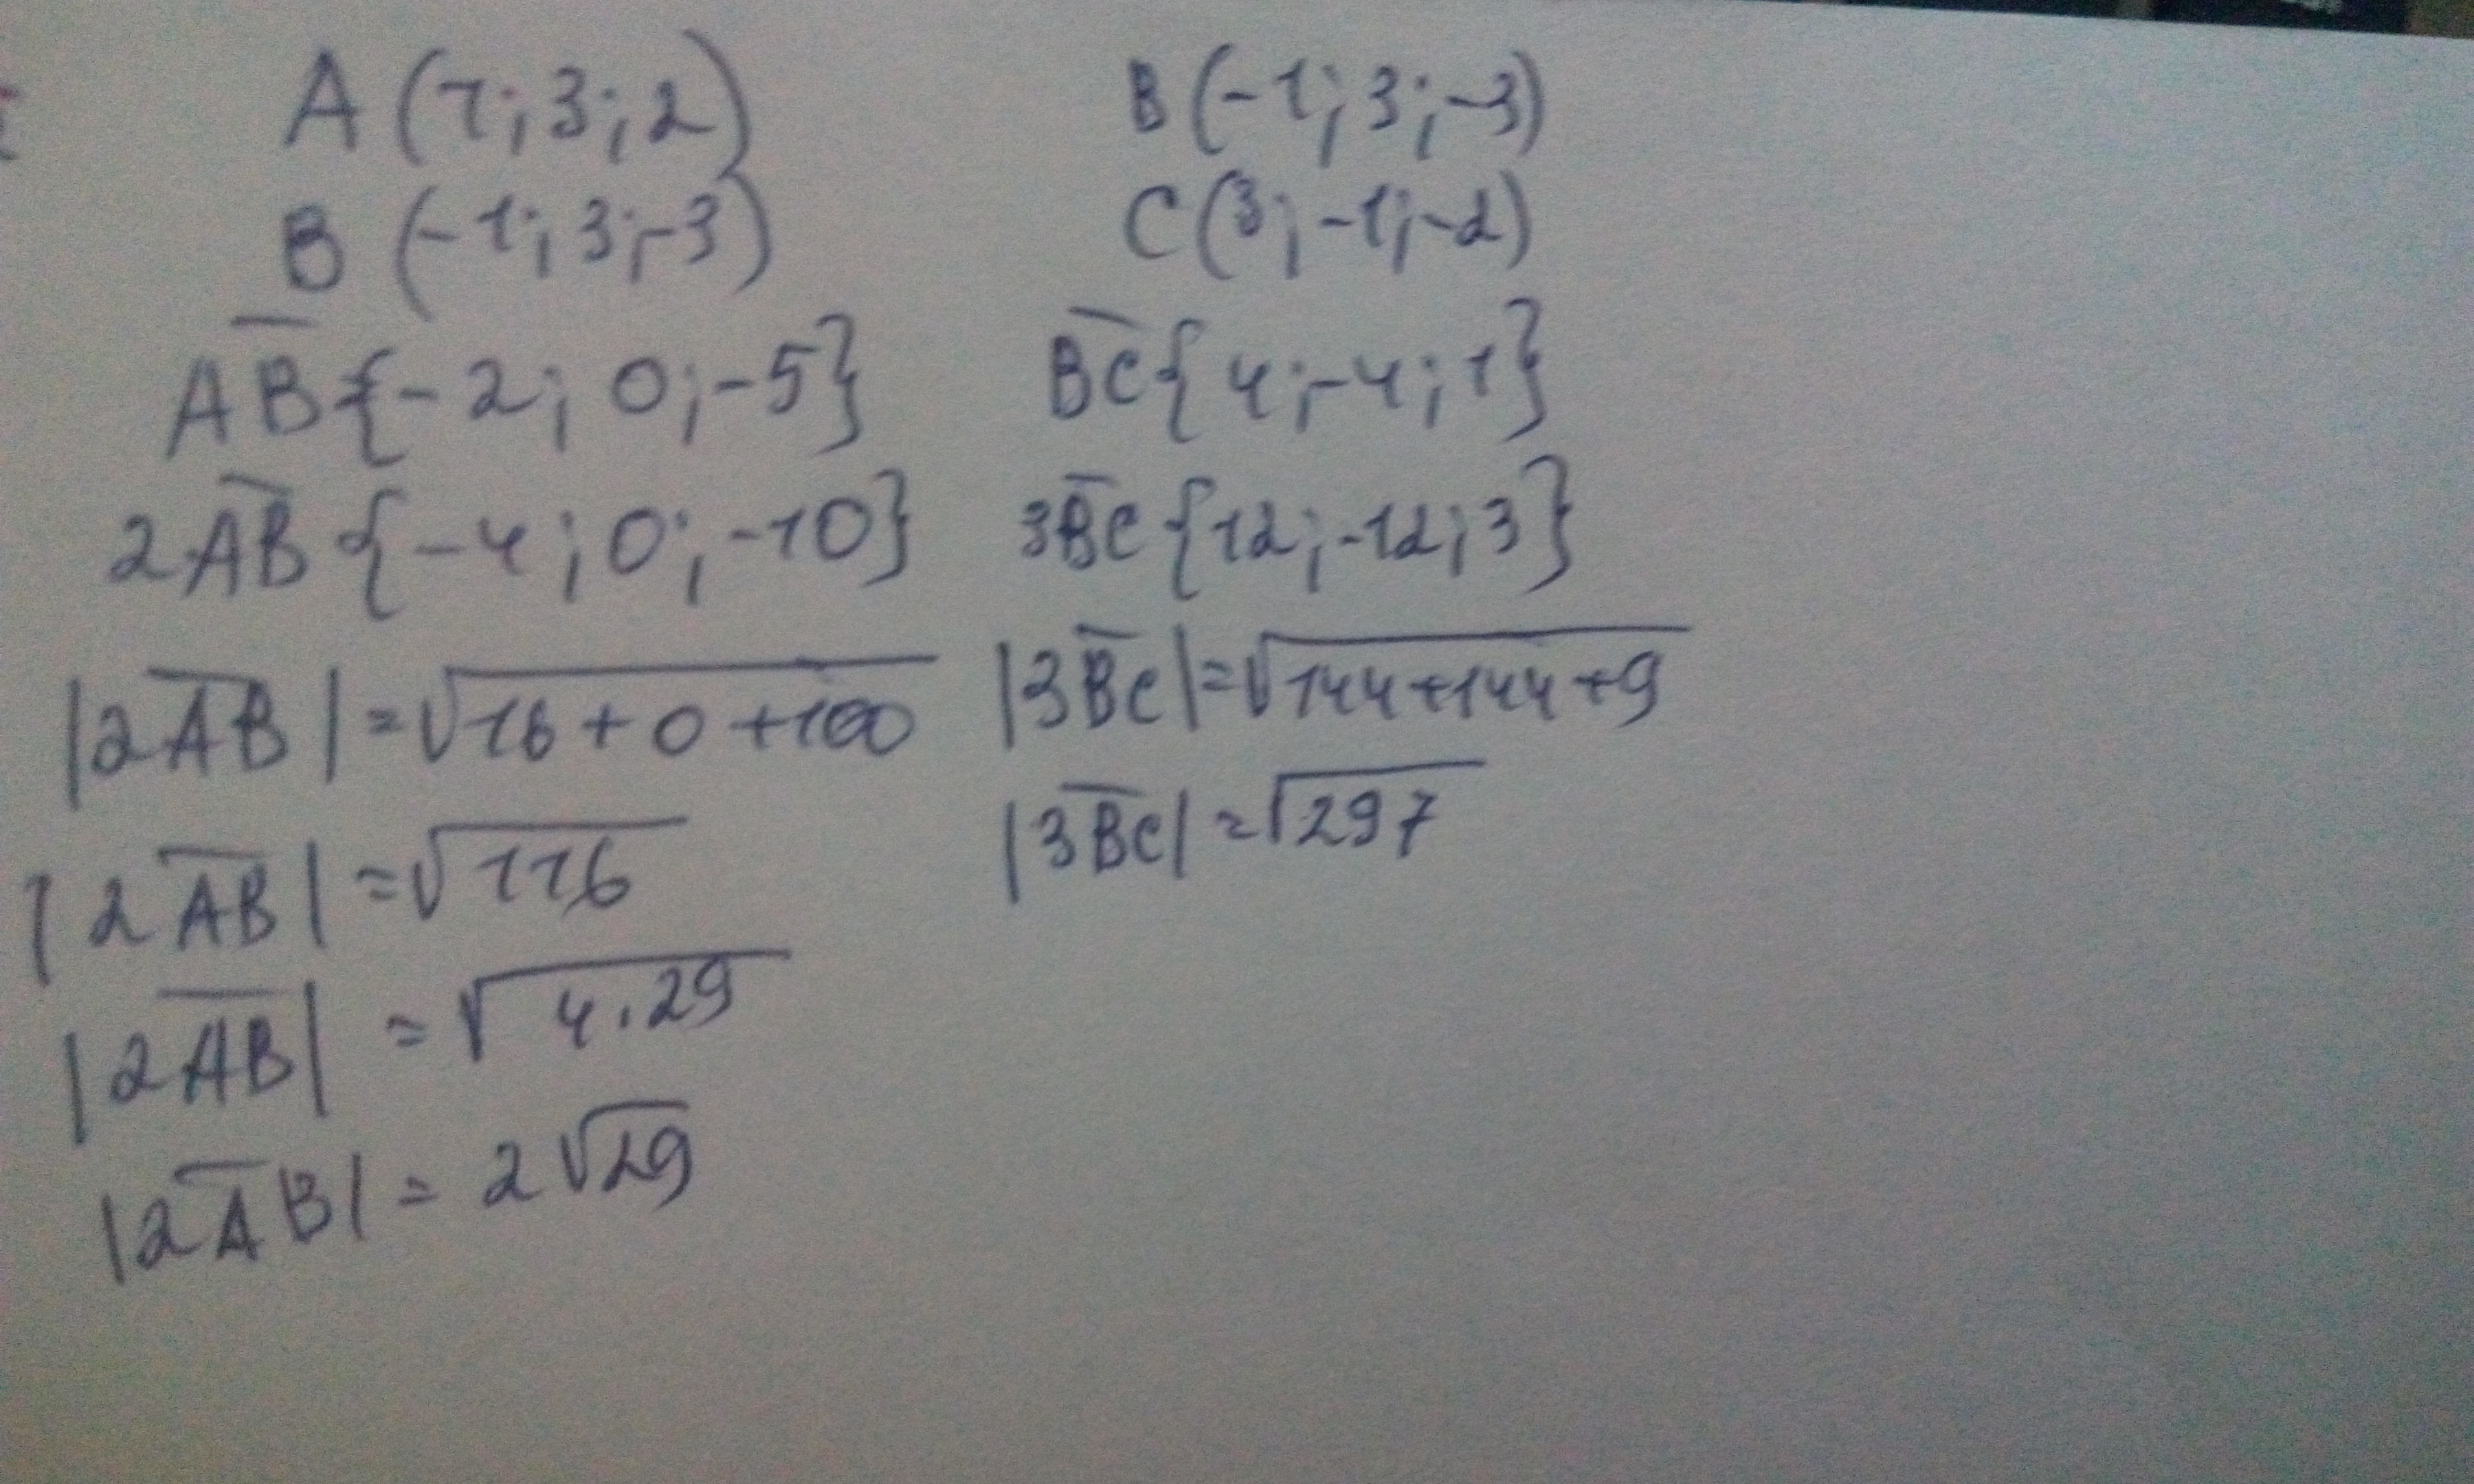 A (1; 3; 2)
B (-1; 3; -3)
AB {-2; 0; -5}
2AB {-4; 0; -10}
|2AB| = √16 + 0 + 100
|2AB| = √116
|2AB| = √4·29
|2AB| = 2√29
B (-1; 3; -3)
C (3; -1; -2)
BC {4; -4; 1}
3BC {12; -12; 3}
|3BC| = √144+144+9
|3BC| = √297